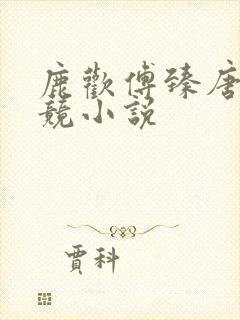 鹿歡傅臻唐
競小說
賈科